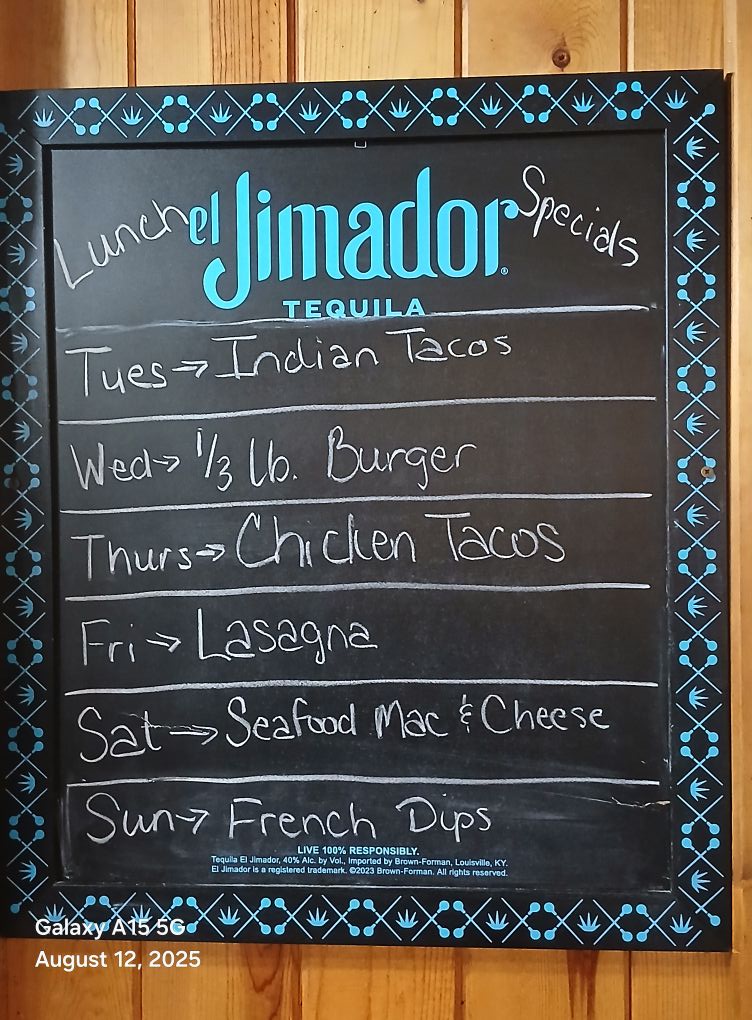 Lunch el Jimador® Specials
TEQUILA
Tues → Indian Tacos
Wed → 1/3 lb. Burger
Thurs → Chicken Tacos
Fri → Lasagna
Sat → Seafood Mac & Cheese
Sun → French Dips
LIVE 100% RESPONSIBLY.
Tequila El Jimador, 40% Alc. by Vol., Imported by Brown-Forman, Louisville, KY.
El Jimador is a registered trademark. ©2023 Brown-Forman. All rights reserved.
Galaxy A15 5G
August 12, 2025